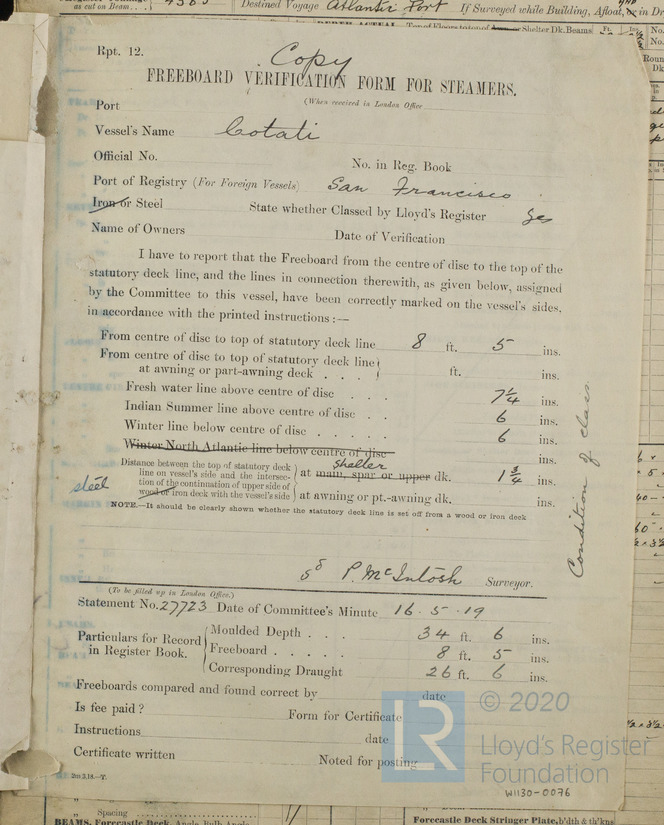 as cut on Beam
4585
Destined Voyage Atlantic Port If Surveyed while Building, Afloat, or in Dr
Rpt. 12.
Copy
FREEBOARD VERIFICATION FORM FOR STEAMERS.
Port
(When received in London Office
Vessel's Name Cotati
Official No.
No. in Reg. Book
Port of Registry (For Foreign Vessels) San Francisco
Iron or Steel State whether Classed by Lloyd's Register Yes
Name of Owners
Date of Verification
I have to report that the Freeboard from the centre of disc to the top of the
statutory deck line, and the lines in connection therewith, as given below, assigned
by the Committee to this vessel, have been correctly marked on the vessel's sides,
in accordance with the printed instructions :—
From centre of disc to top of statutory deck line 8 ft. 5 ins.
From centre of disc to top of statutory deck line
at awning or part-awning deck . . . ft. ins.
Fresh water line above centre of disc . . . 7 1/4 ins.
Indian Summer line above centre of disc . . 6 ins.
Winter line below centre of disc . . . . . 6 ins.
Winter North Atlantic line below centre of disc ins.
Distance between the top of statutory deck
line on vessel's side and the intersec-
tion of the continuation of upper side of
wood or iron deck with the vessel's side
steel
shelter
at main, spar or upper dk. 1 3/4 ins.
at awning or pt.-awning dk. ins.
NOTE.—It should be clearly shown whether the statutory deck line is set off from a wood or iron deck
Condition of class
sd P. McIntosh Surveyor.
(To be filled up in London Office.)
Statement No. 27723 Date of Committee's Minute 16 . 5 . 19
Particulars for Record
in Register Book.
Moulded Depth . . . 34 ft. 6 ins.
Freeboard . . . . 8 ft. 5 ins.
Corresponding Draught 26 ft. 6 ins.
Freeboards compared and found correct by date
Is fee paid ? Form for Certificate
Instructions date
Certificate written Noted for posting
2m.3.18.—T.
LR
© 2020
Lloyd's Register
Foundation
W1130-0076
Spacing
BEAMS, Forecastle Deck, Angle, Bulb Angle,
Forecastle Deck Stringer Plate, b'dth & th'kns